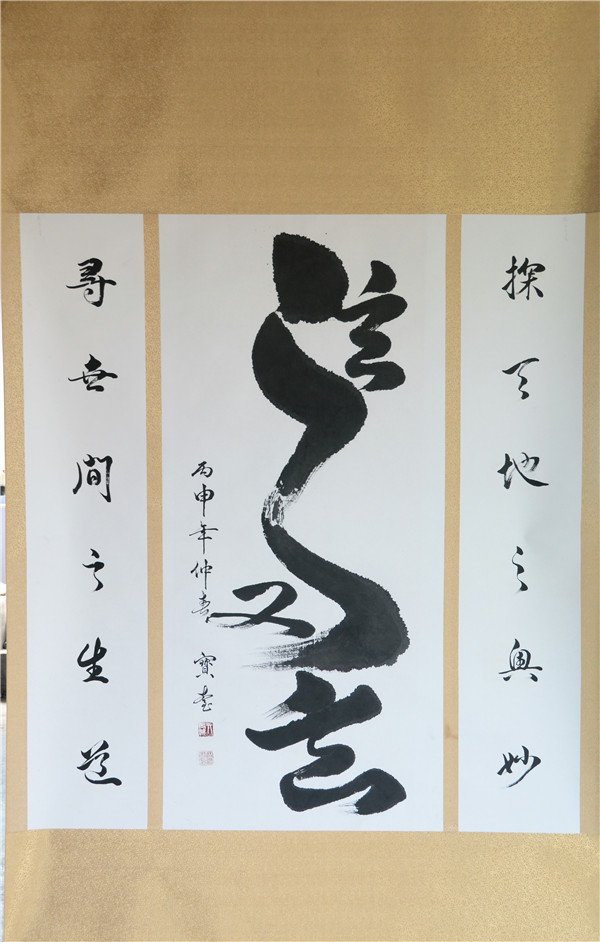 探天地之奧妙
玄之又玄
丙申年仲春 寶
尋世間之生道